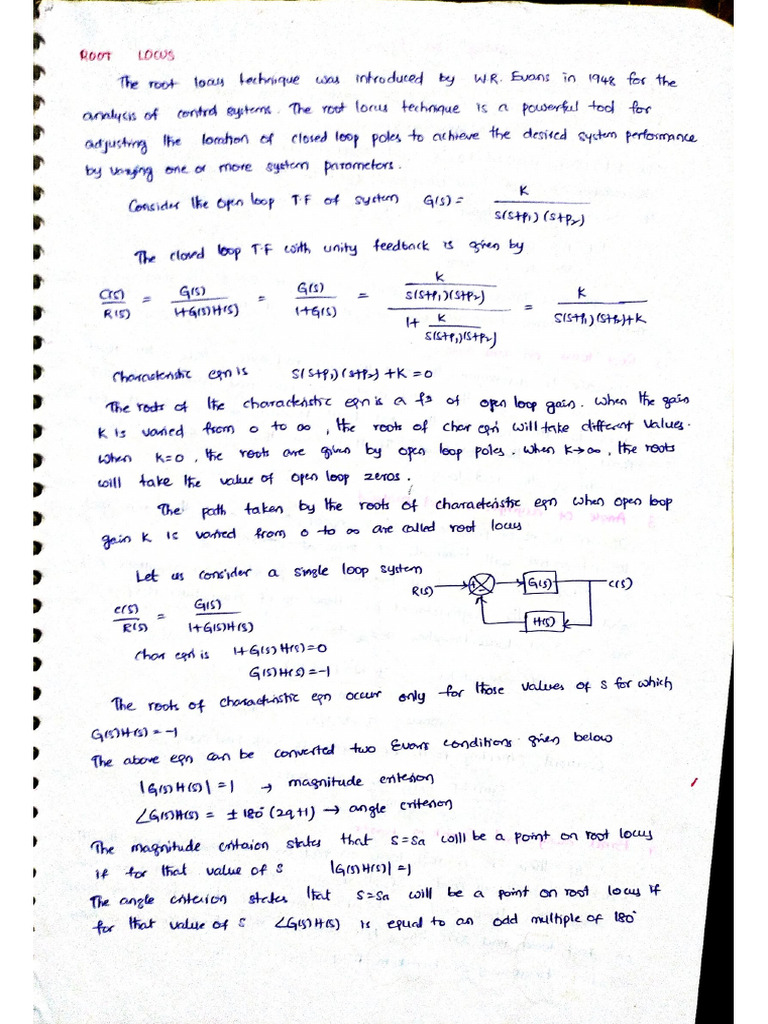 ROOT LOCUS
The root locus technique was introduced by W.R. Evans in 1948 for the
analysis of control systems. The root locus technique is a powerful tool for
adjusting the location of closed loop poles to achieve the desired system performance
by varying one or more system parameters.
Consider the open loop T.F of system G(s) = K / s(s+p1)(s+p2)
The closed loop T.F with unity feedback is given by
C(s)/R(s) = G(s)/1+G(s)H(s) = G(s)/1+G(s) = K/s(s+p1)(s+p2) / 1+ K/s(s+p1)(s+p2) = K/s(s+p1)(s+p2)+K
Characteristic eqn is s(s+p1)(s+p2)+K=0
The roots of the characteristic eqn is a fn of open loop gain. When the gain
K is varied from 0 to ∞, the roots of char eqn will take different values.
When K=0, the roots are given by open loop poles. When K→∞, the roots
will take the value of open loop zeros.
The path taken by the roots of characteristic eqn when open loop
gain K is varied from 0 to ∞ are called root locus
Let us consider a single loop system
R(s) + - G(s) C(s)
H(s)
C(s)/R(s) = G(s)/1+G(s)H(s)
Char eqn is 1+G(s)H(s)=0
G(s)H(s)=-1
The roots of characteristic eqn occur only for those values of s for which
G(s)H(s)=-1
The above eqn can be converted two Evans conditions given below
|G(s)H(s)|=1 → magnitude criterion
∠G(s)H(s) = ±180°(2q+1) → angle criterion
The magnitude criterion states that s=sa will be a point on root locus
if for that value of s |G(s)H(s)|=1
The angle criterion states that s=sa will be a point on root locus if
for that value of s ∠G(s)H(s) is equal to an odd multiple of 180°